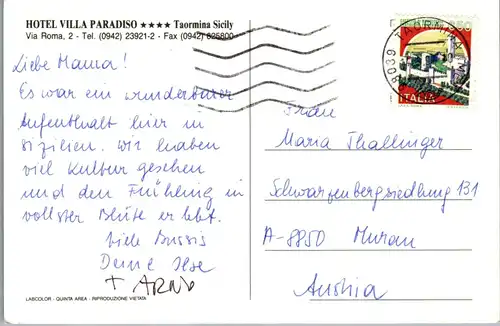 HOTEL VILLA PARADISO ★★★★ Taormina Sicily
Via Roma, 2 - Tel. (0942) 23921-2 - Fax (0942) 625800
Liebe Mama!
Es war ein wunderbarer
Aufenthalt hier in
Sizilien. Wir haben
viel Kultur gesehen
und den Frühling in
vollster Blüte erlebt.
Viele Bussis
Deine Ilse
+ ARNO
LABCOLOR - QUINTA AREA - RIPRODUZIONE VIETATA
ITALIA
98039 TAORMINA
Frau
Maria Thallinger
Schwarzenbergsiedlung 131
A-8850 Murau
Austria